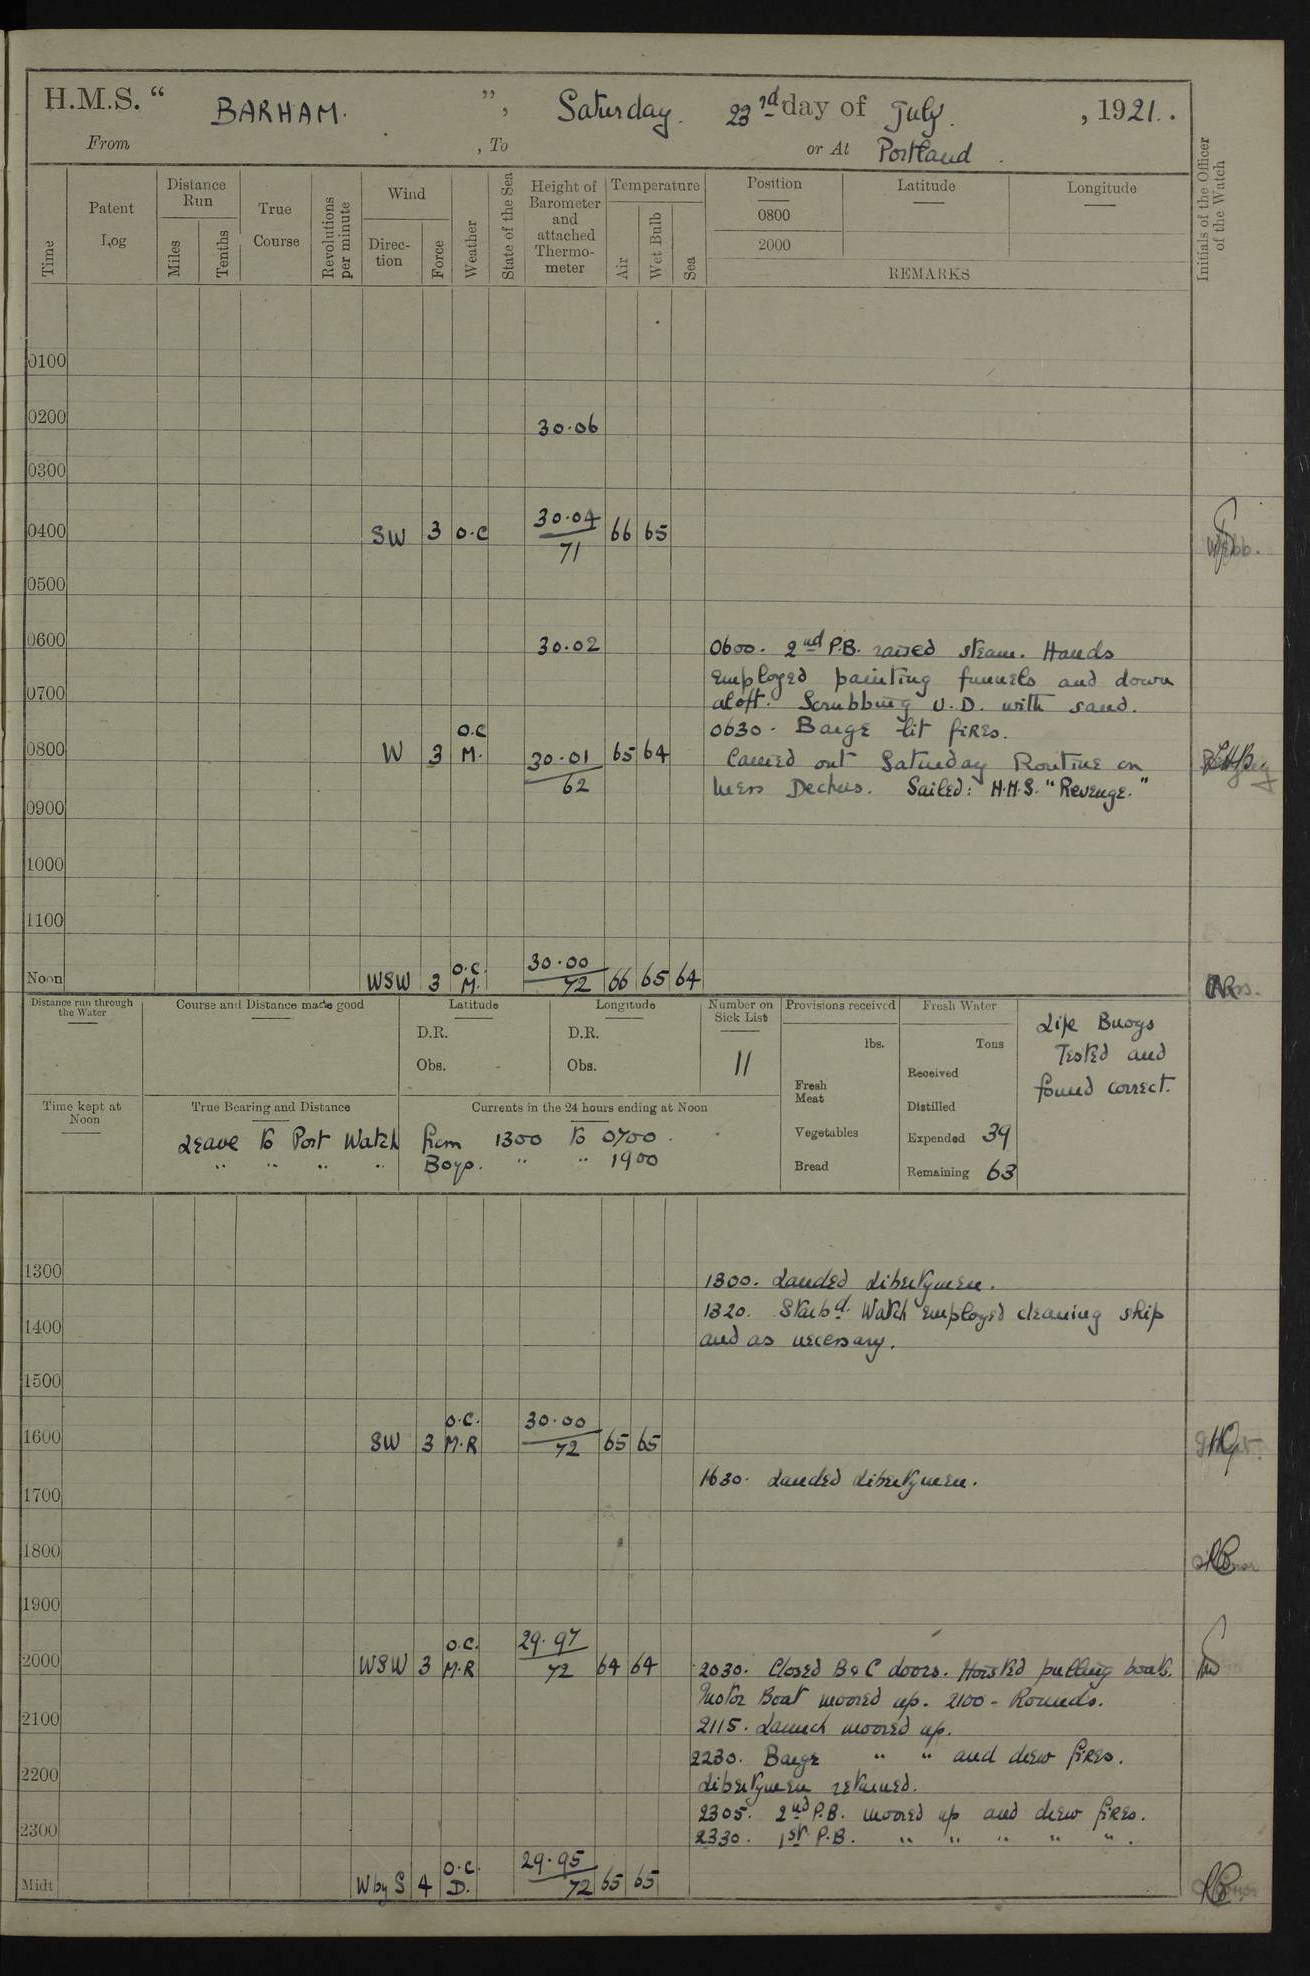 H.M.S. “ BARHAM. ”, Saturday 23rd day of July, 1921.
From , To or At Portland.
Time
Patent Log
Distance Run
Miles
Tenths
True Course
Revolutions per minute
Wind
Direction
Force
Weather
State of the Sea
Height of Barometer and attached Thermometer
Temperature
Air
Wet Bulb
Sea
Position
0800
2000
Latitude
Longitude
REMARKS
Initials of the Officer of the Watch
0100
0200 30.06
0300
0400 SW 3 O.C 30.04 71 66 65
0500
0600 30.02 0600. 2nd P.B. raised steam. Hands
employed painting funnels and down
0700 aloft. Scrubbing U.D. with sand.
0630. Barge lit fires.
0800 W 3 O.C M. 30.01 62 65 64 Carried out Saturday Routine on
Mess Decks. Sailed: H.M.S. "Revenge."
0900
1000
1100
Noon WSW 3 O.C. M. 30.00 72 66 65 64
Distance run through the Water
Course and Distance made good
Latitude
D.R.
Obs.
Longitude
D.R.
Obs.
Number on Sick List
11
Provisions received
lbs.
Fresh Meat
Vegetables
Bread
Fresh Water
Tons
Received
Distilled
Expended 39
Remaining 63
Life Buoys
Tested and
found correct.
Time kept at Noon
True Bearing and Distance
Currents in the 24 hours ending at Noon
Leave to Port Watch from 1300 to 0700.
" " " " Boys. " " 1900
1300 1300. Landed libertymen.
1320. Starbd. Watch employed cleaning ship
1400 and as necessary.
1500
1600 SW 3 O.C. M.R 30.00 72 65 65
1630. Landed libertymen.
1700
1800
1900
2000 WSW 3 O.C. M.R 29.97 72 64 64 2030. Closed B & C doors. Hoisted pulling boats.
Motor Boat moored up. 2100 - Rounds.
2100 2115. Launch moored up.
2230. Barge " " and drew fires.
2200 Libertymen returned.
2305. 2nd P.B. moored up and drew fires.
2300 2330. 1st P.B. " " " " ".
Midt W by S 4 O.C. D. 29.95 72 65 65